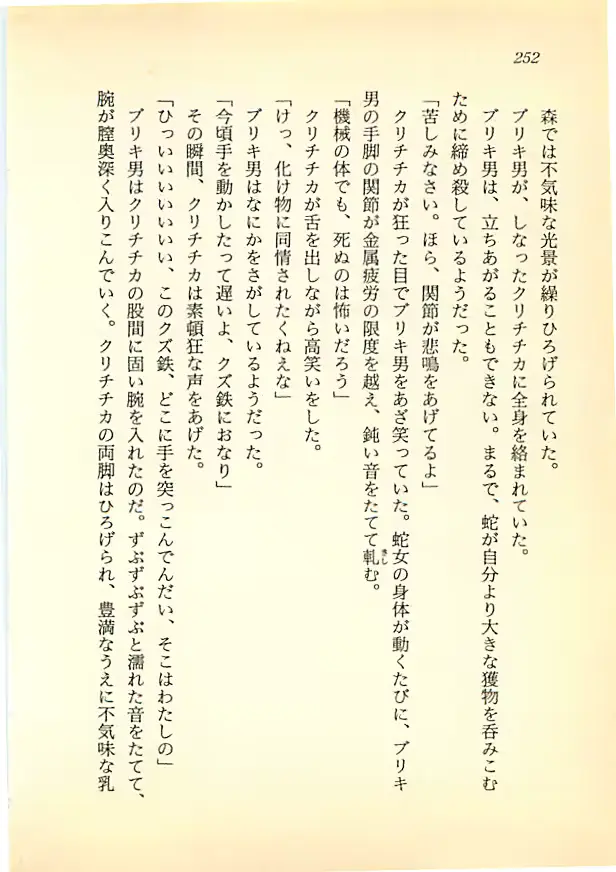 252
森では不気味な光景が繰りひろげられていた。
ブリキ男が、しなったクリチチカに全身を絡まれていた。
ブリキ男は、立ちあがることもできない。まるで、蛇が自分より大きな獲物を呑みこむ
ために締め殺しているようだった。
「苦しみなさい。ほら、関節が悲鳴をあげてるよ」
クリチチカが狂った目でブリキ男をあざ笑っていた。蛇女の身体が動くたびに、ブリキ
男の手脚の関節が金属疲労の限度を越え、鈍い音をたてて軋む。
「機械の体でも、死ぬのは怖いだろう」
クリチチカが舌を出しながら高笑いをした。
「けっ、化け物に同情されたくねえな」
ブリキ男はなにかをさがしているようだった。
「今頃手を動かしたって遅いよ、クズ鉄におなり」
その瞬間、クリチチカは素頓狂な声をあげた。
「ひっいいいいいいい、このクズ鉄、どこに手を突っこんでんだい、そこはわたしの」
ブリキ男はクリチチカの股間に固い腕を入れたのだ。ずぶずぶずぶと濡れた音をたてて、
腕が膣奥深く入りこんでいく。クリチチカの両脚はひろげられ、豊満なうえに不気味な乳